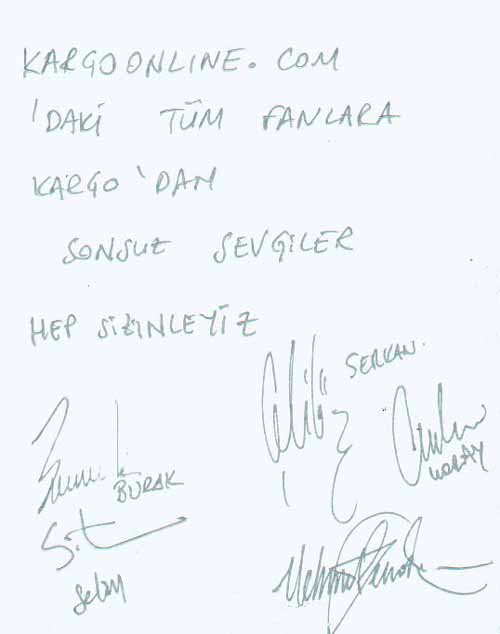 KARGOONLINE.COM
'DAKİ TÜM FANLARA
KARGO 'DAN
SONSUZ SEVGİLER
HEP SİZİNLEYİZ
SERKAN.
BURAK
KORAY
Selim
Mehmet